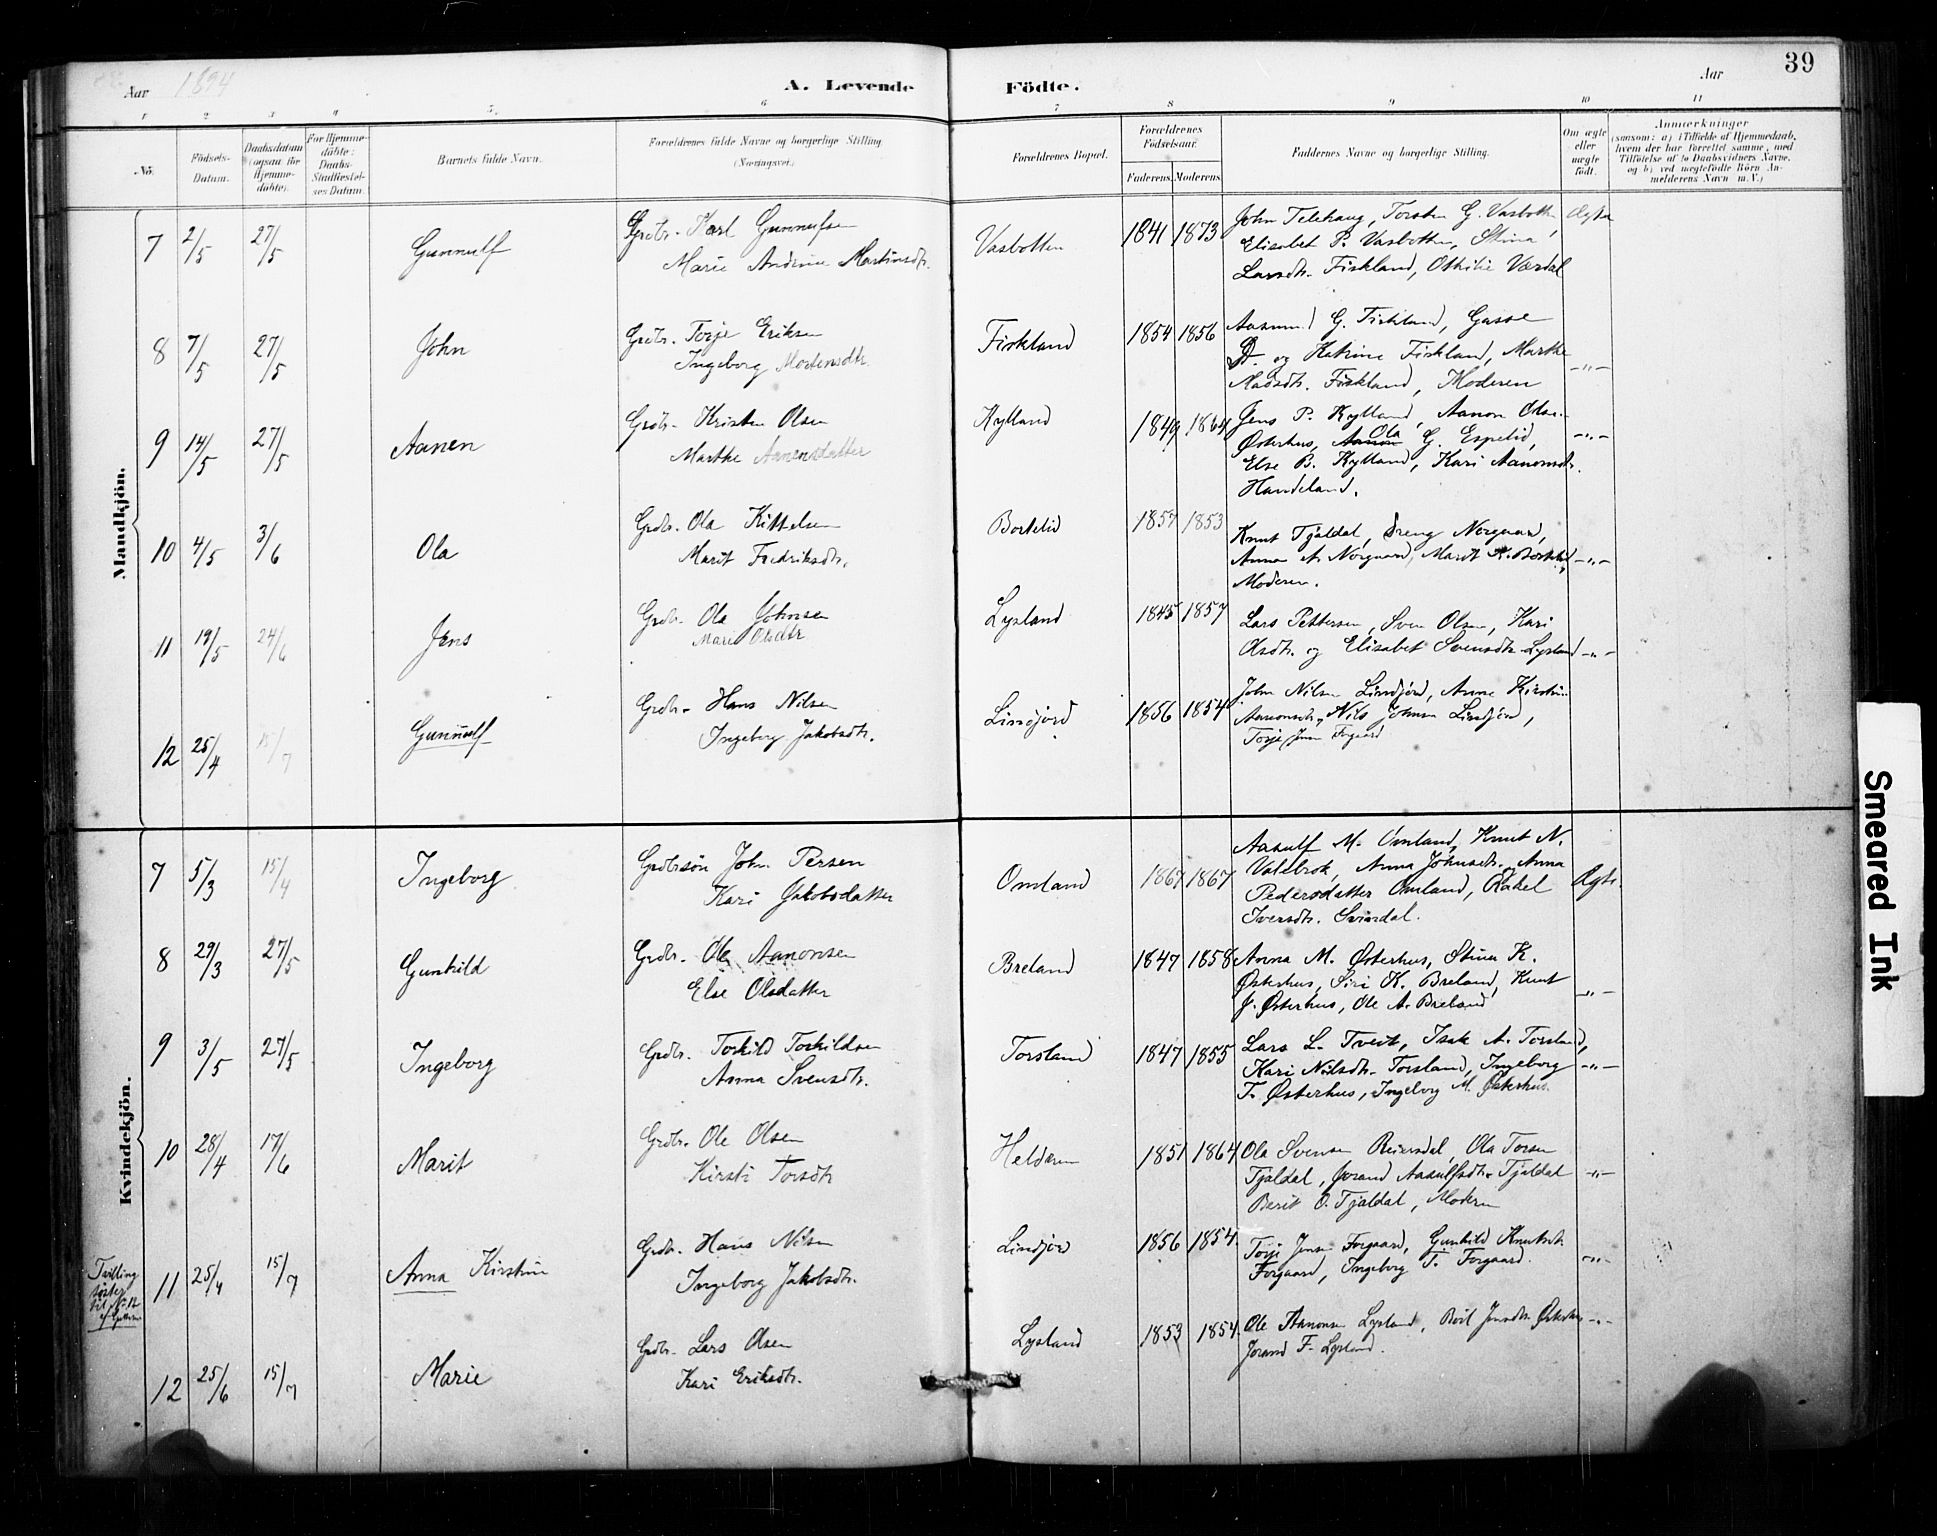 39
Aar 1894
A. Levende
Födte.
Aar
1 2 3 4 5 6 7 8 9 10 11
No.
Födsels-
Datum.
Daabsdatum
(ogsaa for
Hjemme-
döbte).
For Hjemme-
döbte:
Daabs-
Stadfæstel-
ses Datum.
Barnets fulde Navn.
Forældrenes fulde Navne og borgerlige Stilling
(Næringsvei.)
Forældrenes Bopæl.
Forældrenes
Födselsaar.
Faderens. Moderens.
Faddernes Navne og borgerlige Stilling.
Om ægte
eller
uægte
födt.
Anmærkninger
(saasom: a) i Tilfælde af Hjemmedaab,
hvem der har forrettet samme, med
Tilföielse af to Daabsvidners Navne,
og b) ved uægtefödte Börn An-
melderens Navn m. V.)
Mandkjön.
7 2/5 27/5 Gunnulf
Grdbr. Karl Gunnulfsen
Marie Andrine Martinsdtr.
Vasbotten 1841 1873
John Telehaug, Torsten G. Vasbotten,
Elisabet P. Vasbotten, Stina
Larsdtr. Fiskland, Othilie Værdal
Ægte
8 7/5 27/5 John
Grdbr. Torje Eriksen
Ingeborg Mortensdtr.
Fiskland 1854 1856
Aasmund G. Fiskland, Gasse
og Katrine Fiskland, Marthe
Madsdtr. Fiskland, Moderen
-"-
9 14/5 27/5 Aanen
Grdbr. Kristen Olsen
Marthe Aanensdatter
Kylland 1849 1864
Jens P. Kylland, Aanon Olsen
Østerhus, Aanon Ola G. Espelid,
Else B. Kylland, Kari Aanonsdtr.
Handeland.
-"-
10 4/5 3/6 Ola
Grdbr. Ola Kittelsen
Marit Fredriksdtr.
Bortelid 1857 1853
Knut Tjaldal, Dreng Norgaard,
Anna A. Norgaard, Marit K. Bortelid,
Moderen.
-"-
11 19/5 24/6 Jens
Grdbr. Ola Johnsen
Mari Olsdtr
Lysland 1845 1857
Lars Pettersen, Sven Olsen, Kari
Olsdtr. og Elisabet Svensdtr. Lysland
-"-
12 25/4 15/7 Gunnulf
Grdbr. Hans Nilsen
Ingeborg Jakobsdtr.
Lindjord 1856 1854
John Nilsen Lindjord, Anne Kirstine
Aanonsdtr, Nils Johnsen Lindjord,
Torje Jensen Forgaard
Kvindekjön.
7 5/3 15/4 Ingeborg
Grdbrsön John Persen
Kari Jakobsdatter
Omland 1867 1867
Aasulf M. Omland, Knut N.
Valebrok, Anna Johnsdtr., Anna
Pedersdatter Omland, Rakel
Iversdtr. Svindal.
Ægte
8 29/3 27/5 Gunhild
Grdbr. Ole Aanonsen
Else Olsdatter
Breland 1847 1858
Anna M. Østerhus, Stina K.
Østerhus, Siri K. Breland, Knut
J. Østerhus, Ole A. Breland
-"-
9 3/5 27/5 Ingeborg
Grdbr. Torkild Torkildsen
Anna Svensdtr.
Torsland 1847 1855
Lars L. Tveit, Isak A. Torsland,
Kari Nilsdtr. Torsland, Ingeborg
T. Østerhus, Ingeborg M. Østerhus.
-"-
10 28/4 17/6 Marit
Grdbr. Ole Olsen
Kirsti Torsdtr
Helderen 1851 1864
Ola Svensen Reiersdal, Ola Torsen
Tjaldal, Jorand Aasulfsdtr. Tjaldal
Berit O. Tjaldal, Moderen
-"-
Tvilling
söster
til No. 12
af Guttene
11 25/4 15/7 Anna Kirstine
Grdbr. Hans Nilsen
Ingeborg Jakobsdtr.
Lindjord 1856 1854
Torje Jensen Forgaard, Gunhild Knutsdtr
Forgaard, Ingeborg T. Forgaard.
-"-
12 25/6 15/7 Marie
Grdbr. Lars Olsen
Kari Eriksdtr.
Lysland 1853 1854
Ole Aanonsen Lysland, Boil Jensdtr. Østerhus
Jorand F. Lysland.
-"-
Smeared Ink